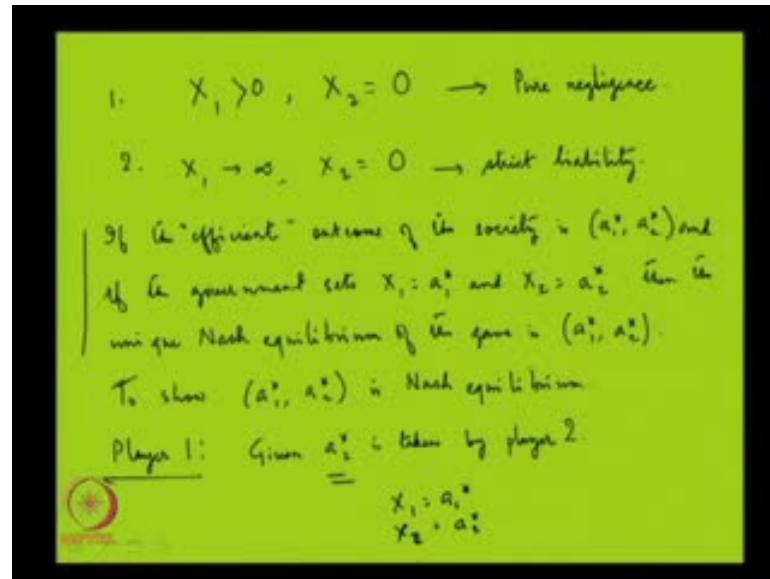 1. X₁ > 0, X₂ = 0 → Pure negligence.
2. X₁ → ∞, X₂ = 0 → strict liability.
If the "efficient" outcome of the society is (a₁*, a₂*) and
if the government sets X₁ = a₁* and X₂ = a₂* then the
unique Nash equilibrium of the game is (a₁*, a₂*).
To show (a₁*, a₂*) is Nash equilibrium
Player 1: Given a₂* is taken by player 2.
X₁ = a₁*
X₂ = a₂*